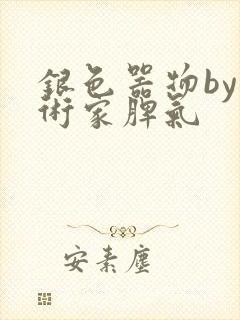 銀色器物by
術家脾氣
安素塵